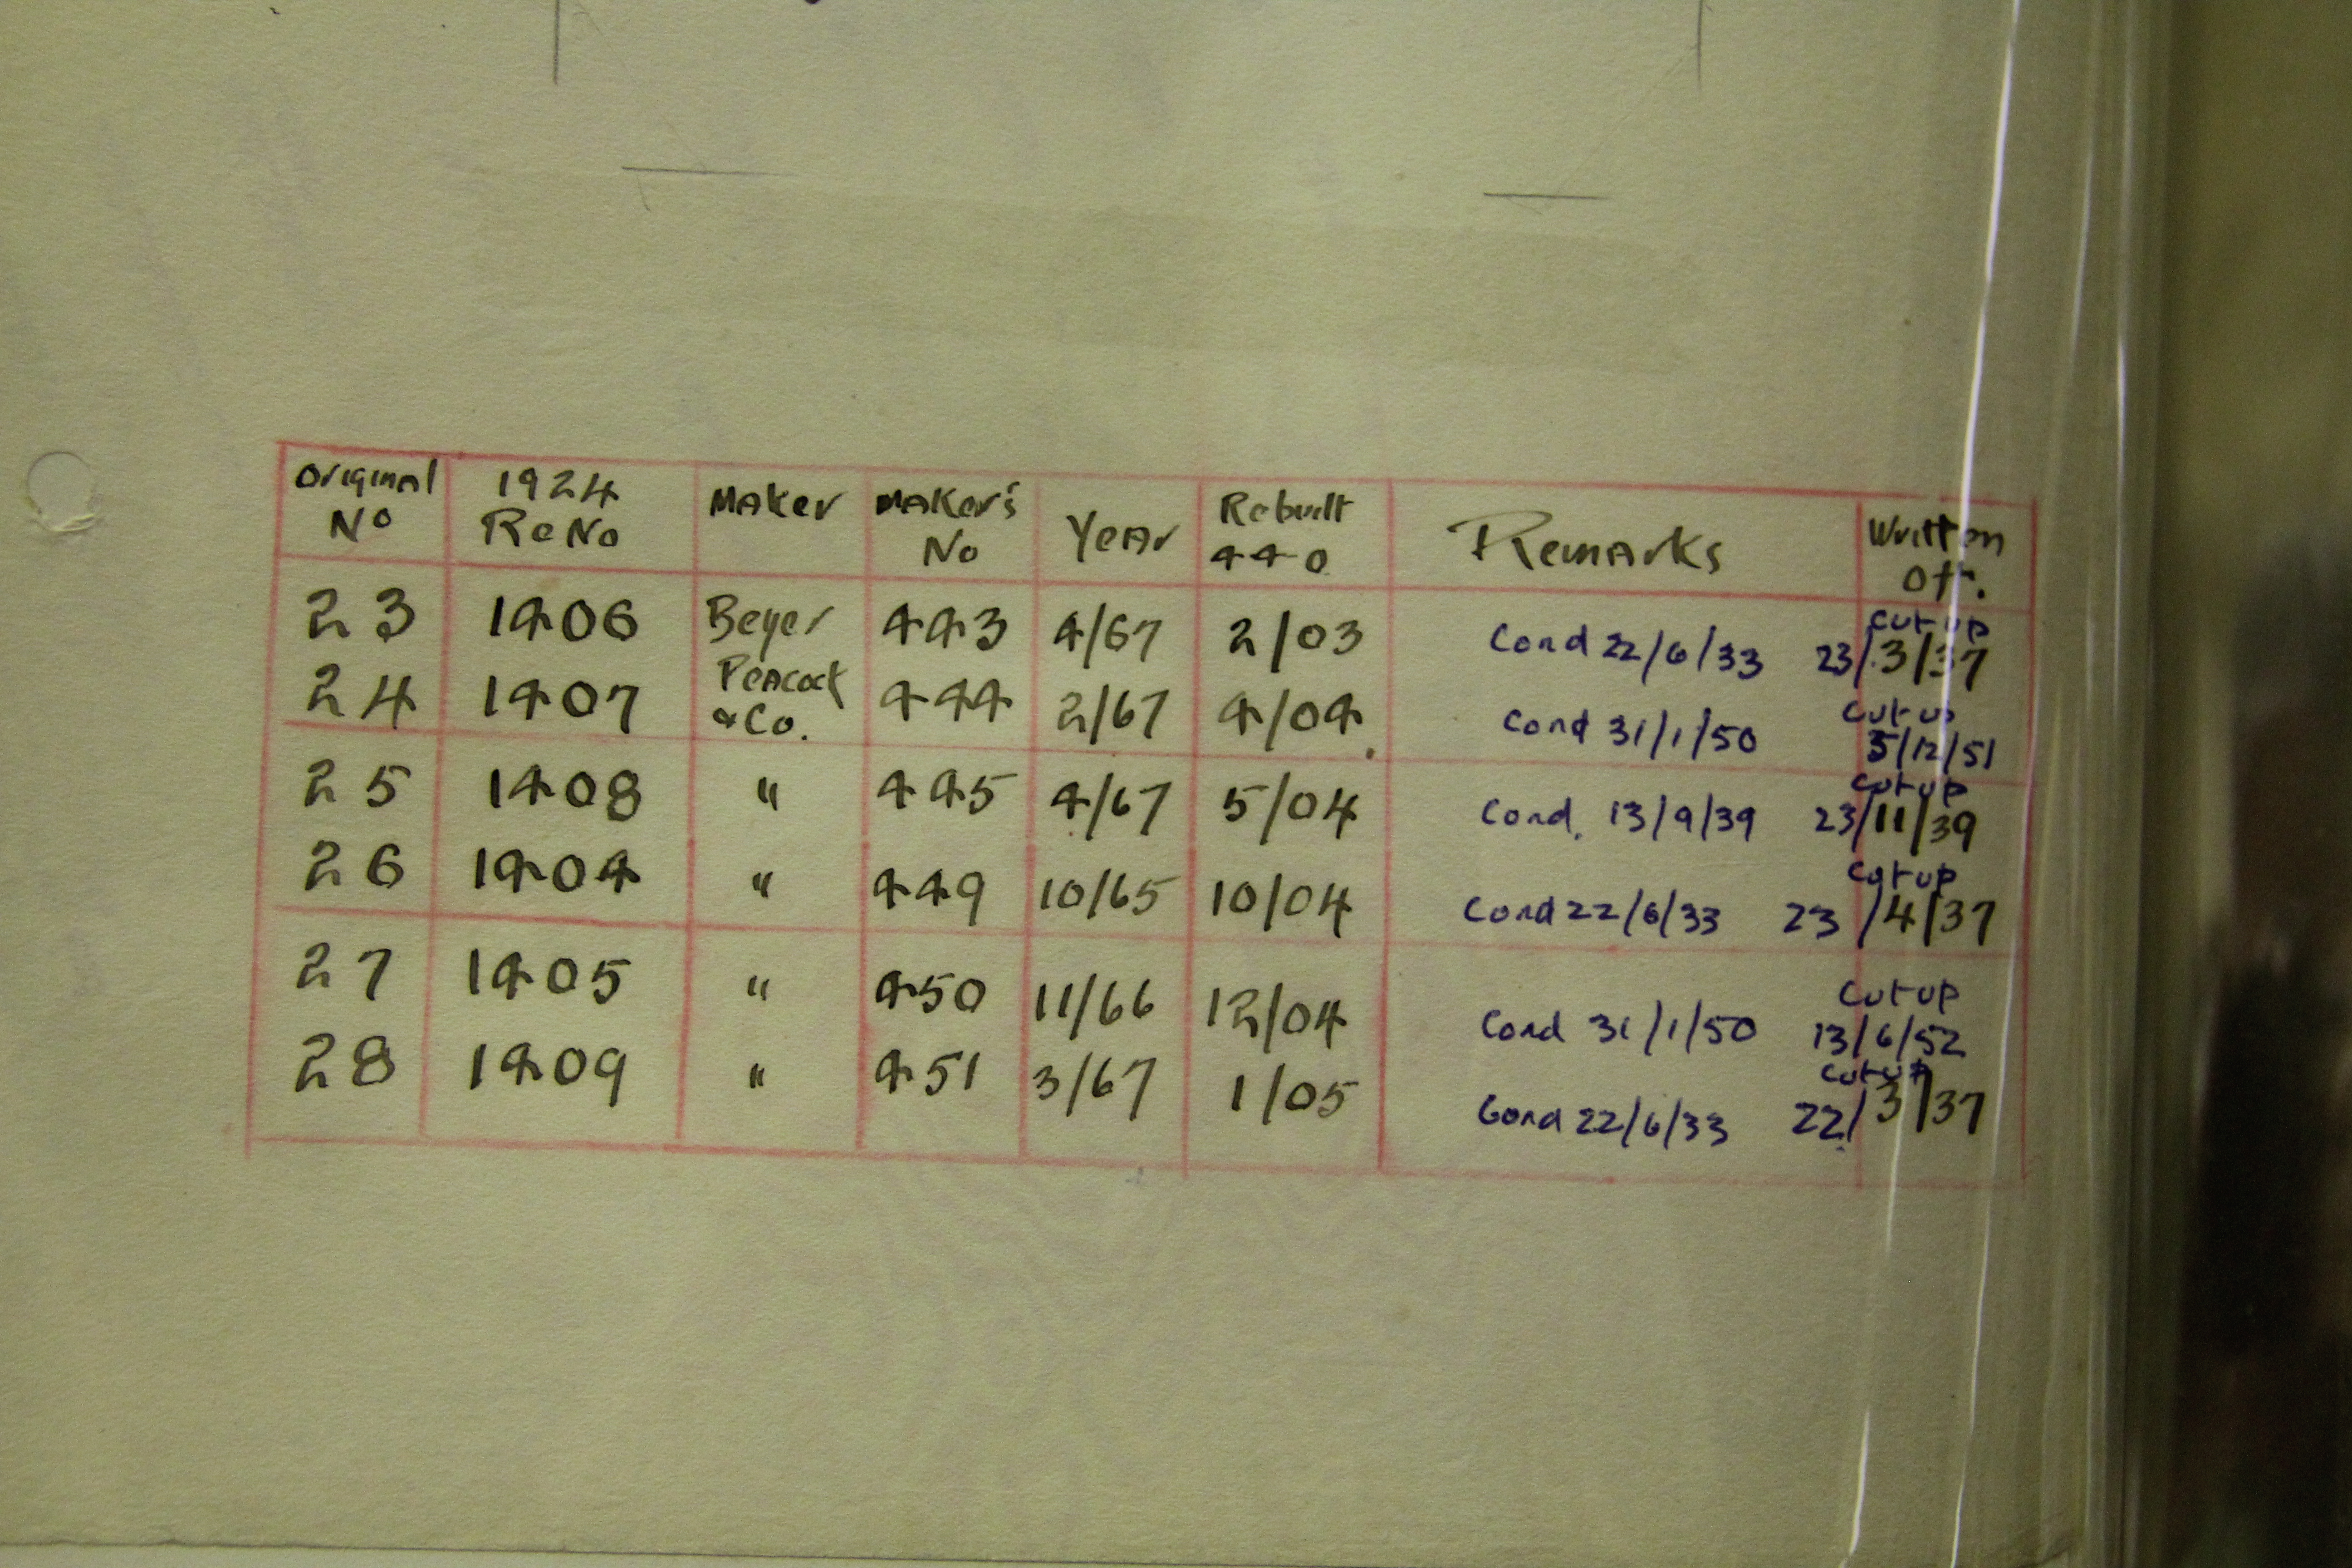 Original No 1924 ReNo Maker Maker's No Year Rebuilt 440 Remarks Written Off.
23 1406 Beyer 443 4/67 2/03 Cond 22/6/33 cut up 23/3/37
24 1407 Peacock & Co. 444 2/67 4/04 Cond 31/1/50 cut up 5/12/51
25 1408 " 445 4/67 5/04 Cond. 13/9/39 cut up 23/11/39
26 1404 " 449 10/65 10/04 Cond 22/6/33 cut up 23/4/37
27 1405 " 450 11/66 12/04 Cond 31/1/50 cut up 13/6/52
28 1409 " 451 3/67 1/05 Cond 22/6/33 cut up 22/3/37